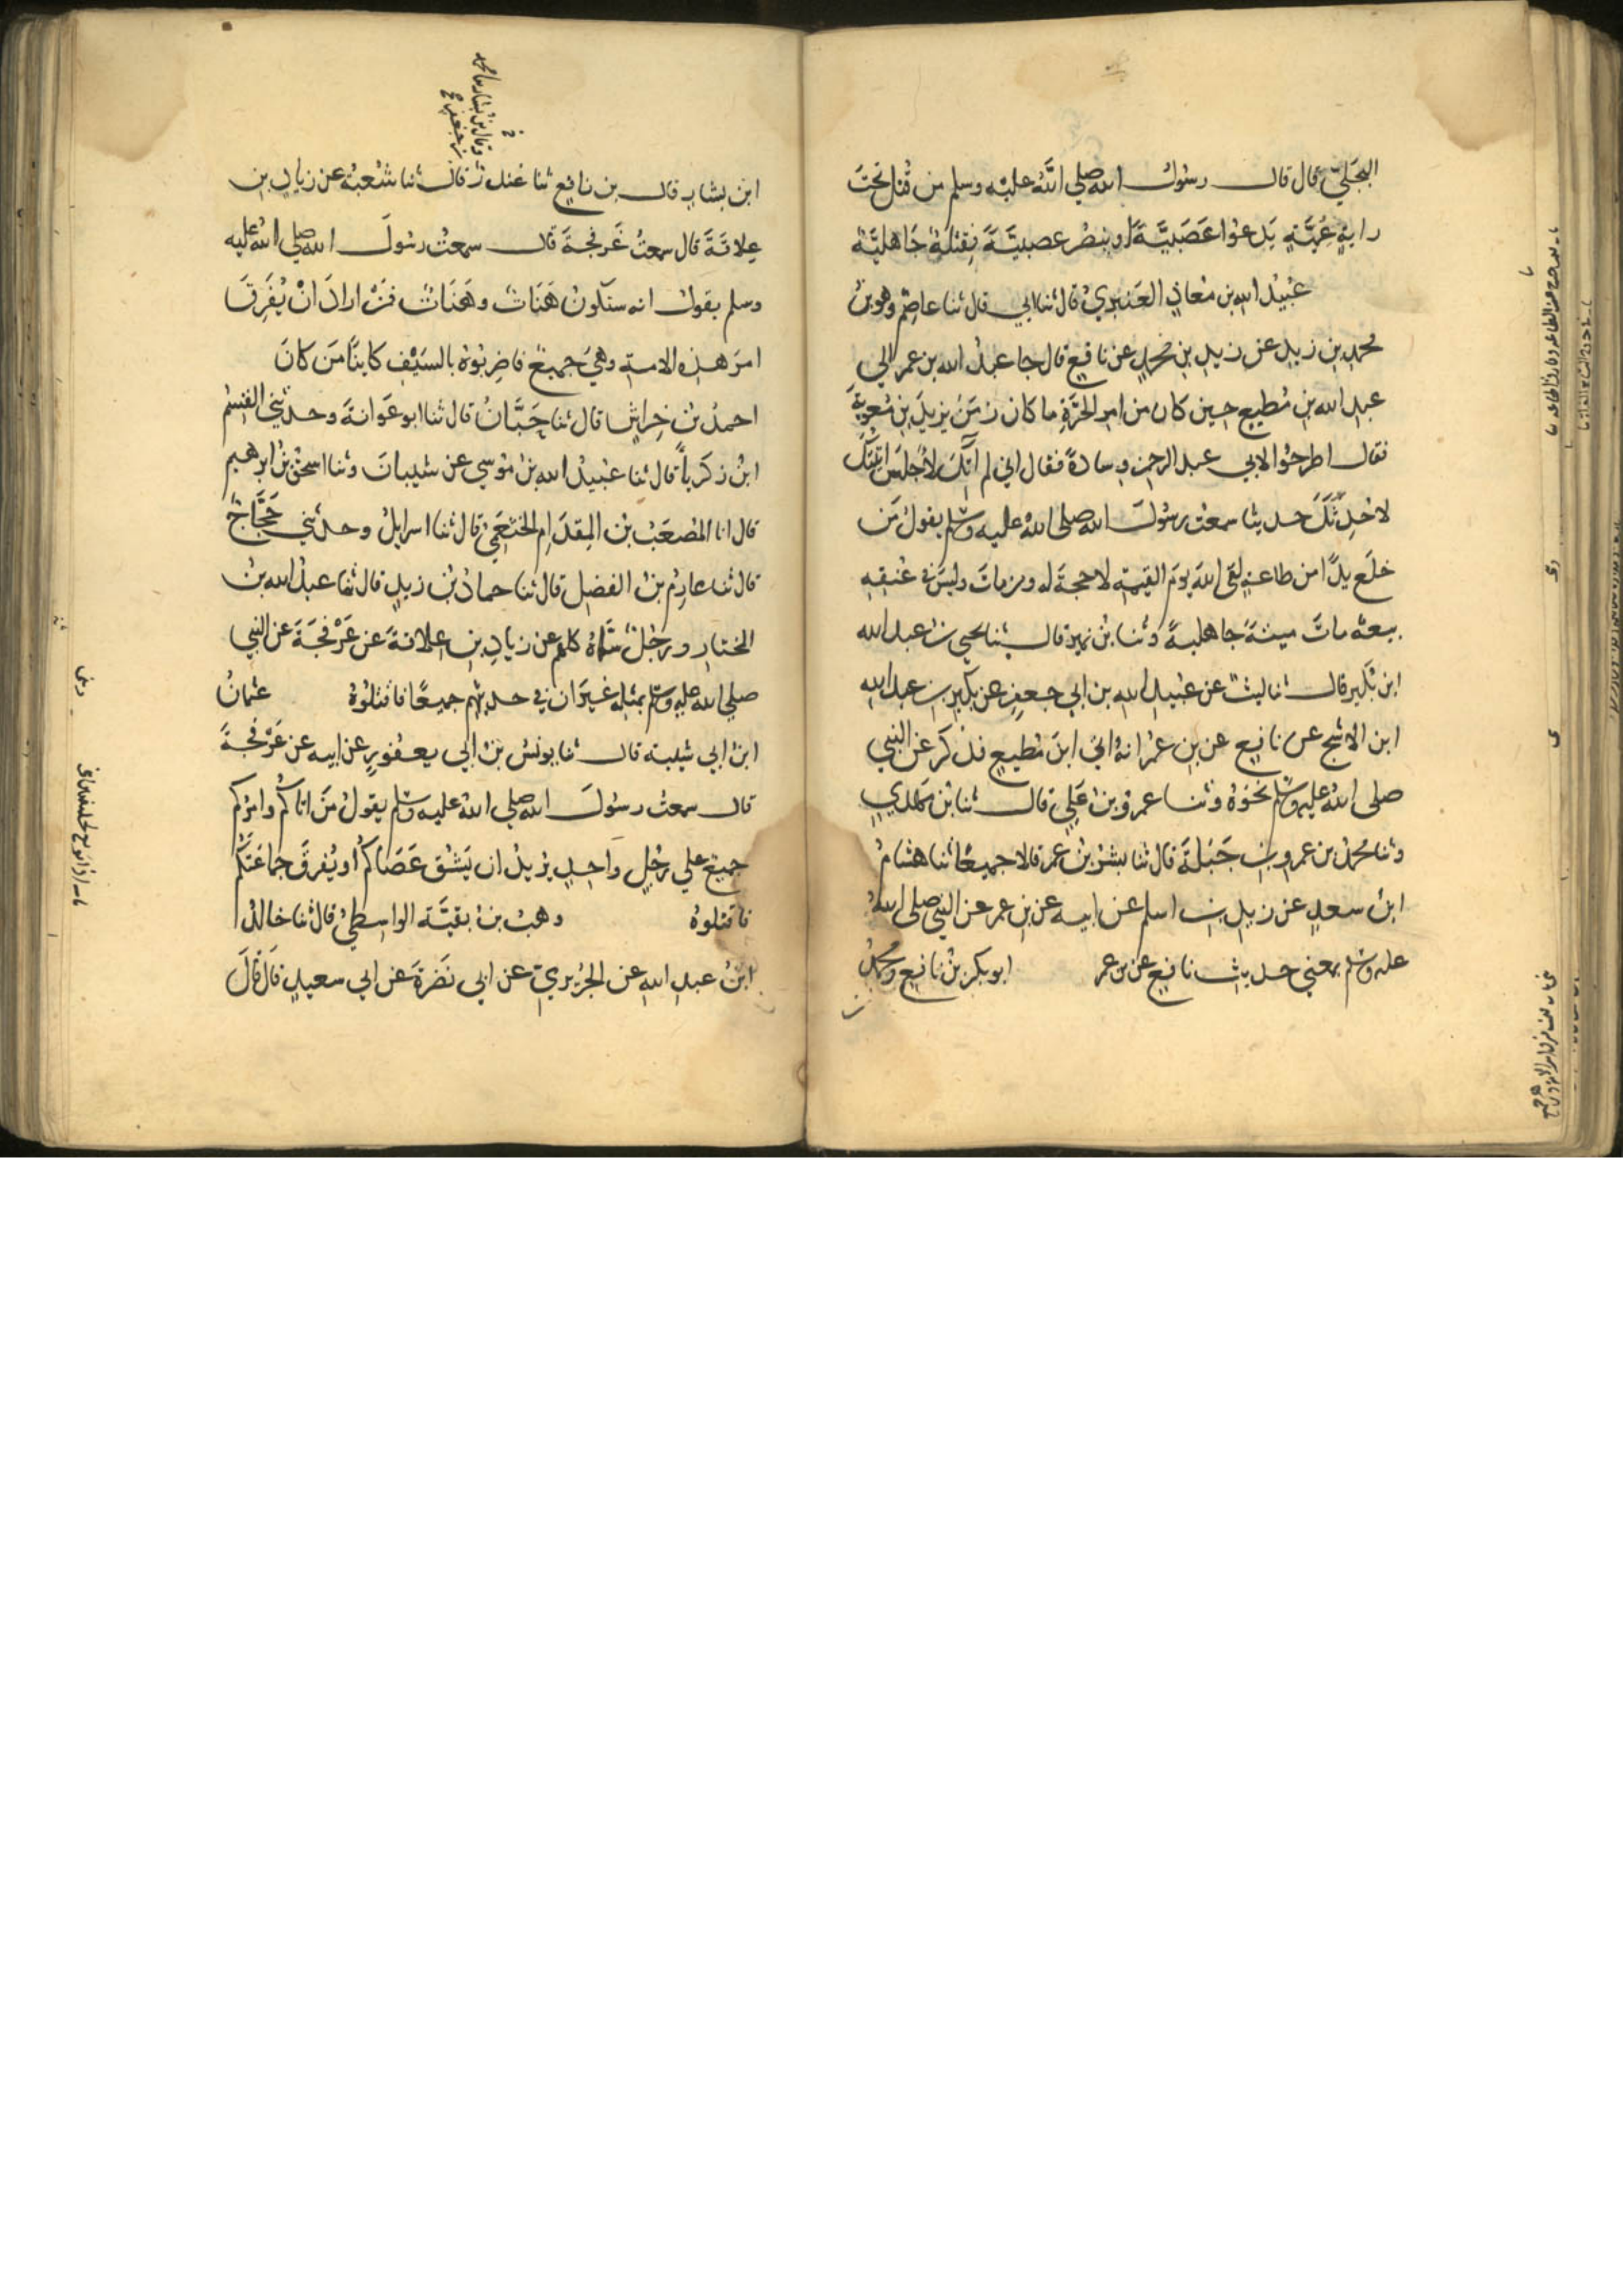 البجلي قال قال رسول الله صلى الله عليه وسلم من قتل تحت
راية عمية يدعوا عصبية او ينصر عصبية فقتلة جاهلية
عبيد الله بن معاذ العنبري قال ثنا ابي قال ثنا عاصم وهو بن
محمد بن زيد عن زيد بن محمد عن نافع قال جا عبد الله بن عمر الي
عبد الله بن مطيع حين كان من امر الحرة ما كان زمن يزيد بن معوية
فقال اطرحوا لابي عبد الرحمن وسادة فقال اني لم آتك لاجلس اتيتك
لاحدثك حديثا سمعت رسول الله صلى الله عليه وسلم يقول من
خلع يدا من طاعة لقي الله يوم القيمة لا حجة له ومن مات وليس في عنقه
بيعة مات ميتة جاهلية وثنا بن نمير قال ثنا يحيي بن عبد الله
ابن بكير قال ثنا ليث عن عبيد الله بن ابي جعفر عن بكير بن عبد الله
ابن الاشج عن نافع عن بن عمر انه اتي ابن مطيع فذكر عن النبي
صلى الله عليه وسلم نحوه وثنا عمرو بن علي قال ثنا بن مهدي
وثنا محمد بن عمرو بن جبلة قال ثنا بشر بن عمر قالا جميعا ثنا هشام
ابن سعد عن زيد بن اسلم عن ابيه عن بن عمر عن النبي صلى الله
عليه وسلم بمعني حديث نافع عن بن عمر ابو بكر بن نافع ومحمد
ابن بشار قال بن نافع ثنا غندر قال ثنا شعبة عن زياد بن
علاقة قال سمعت عرفجة قال سمعت رسول الله صلي الله عليه
وسلم يقول انه ستكون هنات وهنات فمن اراد ان يفرق
امر هذه الامة وهي جميع فاضربوه بالسيف كاينا من كان
احمد بن خراش قال ثنا حبان قال ثنا ابو عوانة وحدثني القسم
ابن زكريا قال ثنا عبيد الله بن موسي عن شيبان وثنا اسحق بن ابرهيم
قال انا المصعب بن المقدام الخثعمي قال ثنا اسرايل وحدثني حجاج
قال ثنا عارم بن الفضل قال ثنا حماد بن زيد قال ثنا عبد الله بن
المختار ورجل سماه كلهم عن زياد بن علاقة عن عرفجة عن النبي
صلي الله عليه وسلم بمثله غير ان في حديثهم جميعا فاقتلوه عثمان
ابن ابي شيبة قال ثنا يونس بن ابي يعفور عن ابيه عن عرفجة
قال سمعت رسول الله صلي الله عليه وسلم يقول من اتاكم وامركم
جميع علي رجل واحد يريد ان يشق عصاكم او يفرق جماعتكم
فاقتلوه وهب بن بقية الواسطي قال ثنا خالد
ابن عبد الله عن الجريري عن ابي نضرة عن ابي سعيد قال قال